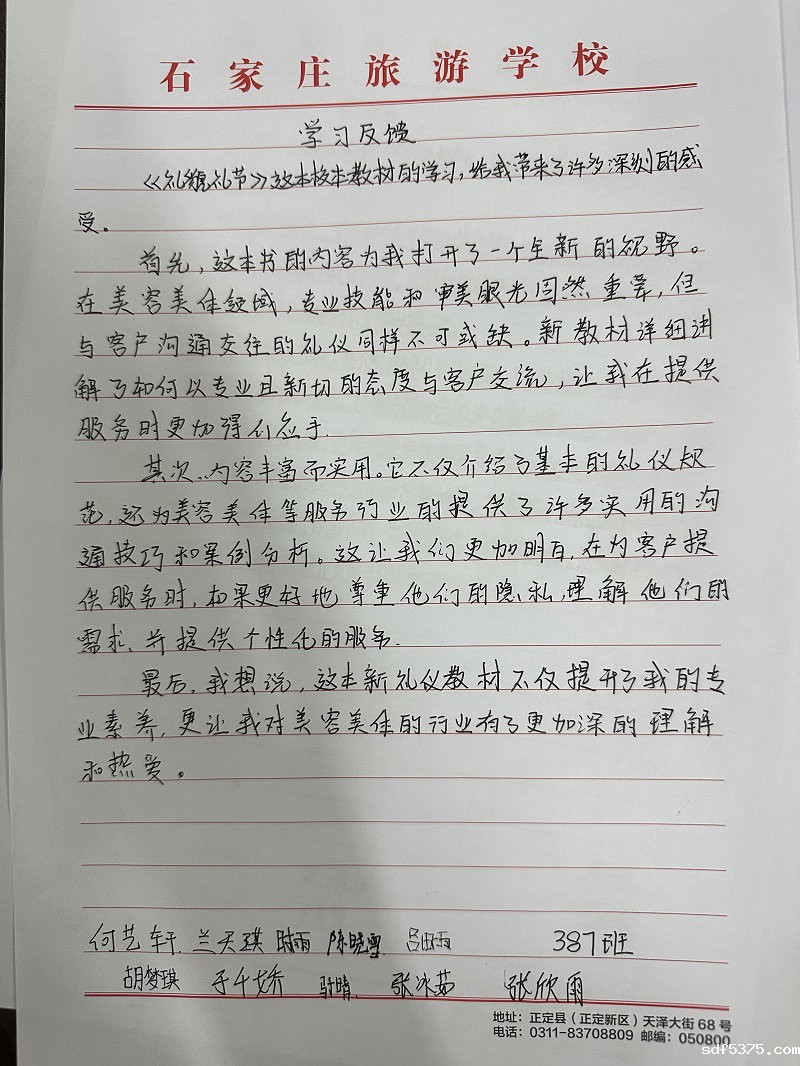 石家庄旅游学校
学习反馈
《礼貌礼节》这本校本教材的学习，给我带来了许多深刻的感
受。
首先，这本书的内容为我打开了一个全新的视野。
在美容美体领域，专业技能和审美眼光固然重要，但
与客户沟通交往的礼仪同样不可或缺。新教材详细讲
解了如何以专业且亲切的态度与客户交流，让我在提供
服务时更加得心应手.
其次、内容丰富而实用。它不仅介绍了基本的礼仪规
范，还为美容美体等服务行业的提供了许多实用的沟
通技巧和案例分析。这让我们更加明白，在为客户提
供服务时，如果更好地尊重他们的隐私，理解他们的
需求、并提供个性化的服务.
最后，我想说，这本新礼仪教材不仅提升了我的专
业素养，更让我对美容美体的行业有了更加深的理解
和热爱。
何艺轩 兰天琪 时雨 陈晓雪 387班
胡梦琪 于千娇 张冰茹 张欣雨
地址：正定县（正定新区）天泽大街68号
电话：0311-83708809 邮编：050800
sdf5375.com